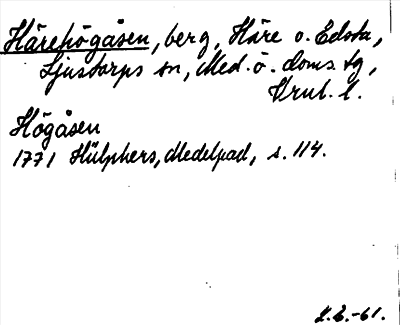 Härehögåsen, berg, Häre o. Edsta,
Ljustorps sn, Med. ö. doms. tg,
Vrul. l.
Högåsen
1771 Hülphers, Medelpad, s. 114.
L.L.-61.